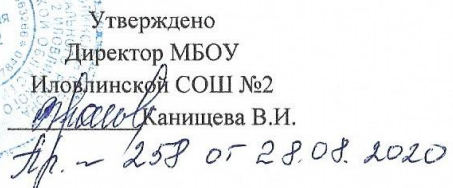 Утверждено
Директор МБОУ
Иловлинской СОШ №2
Канищева В.И.
Пр. ~ 258 от 28.08.2020